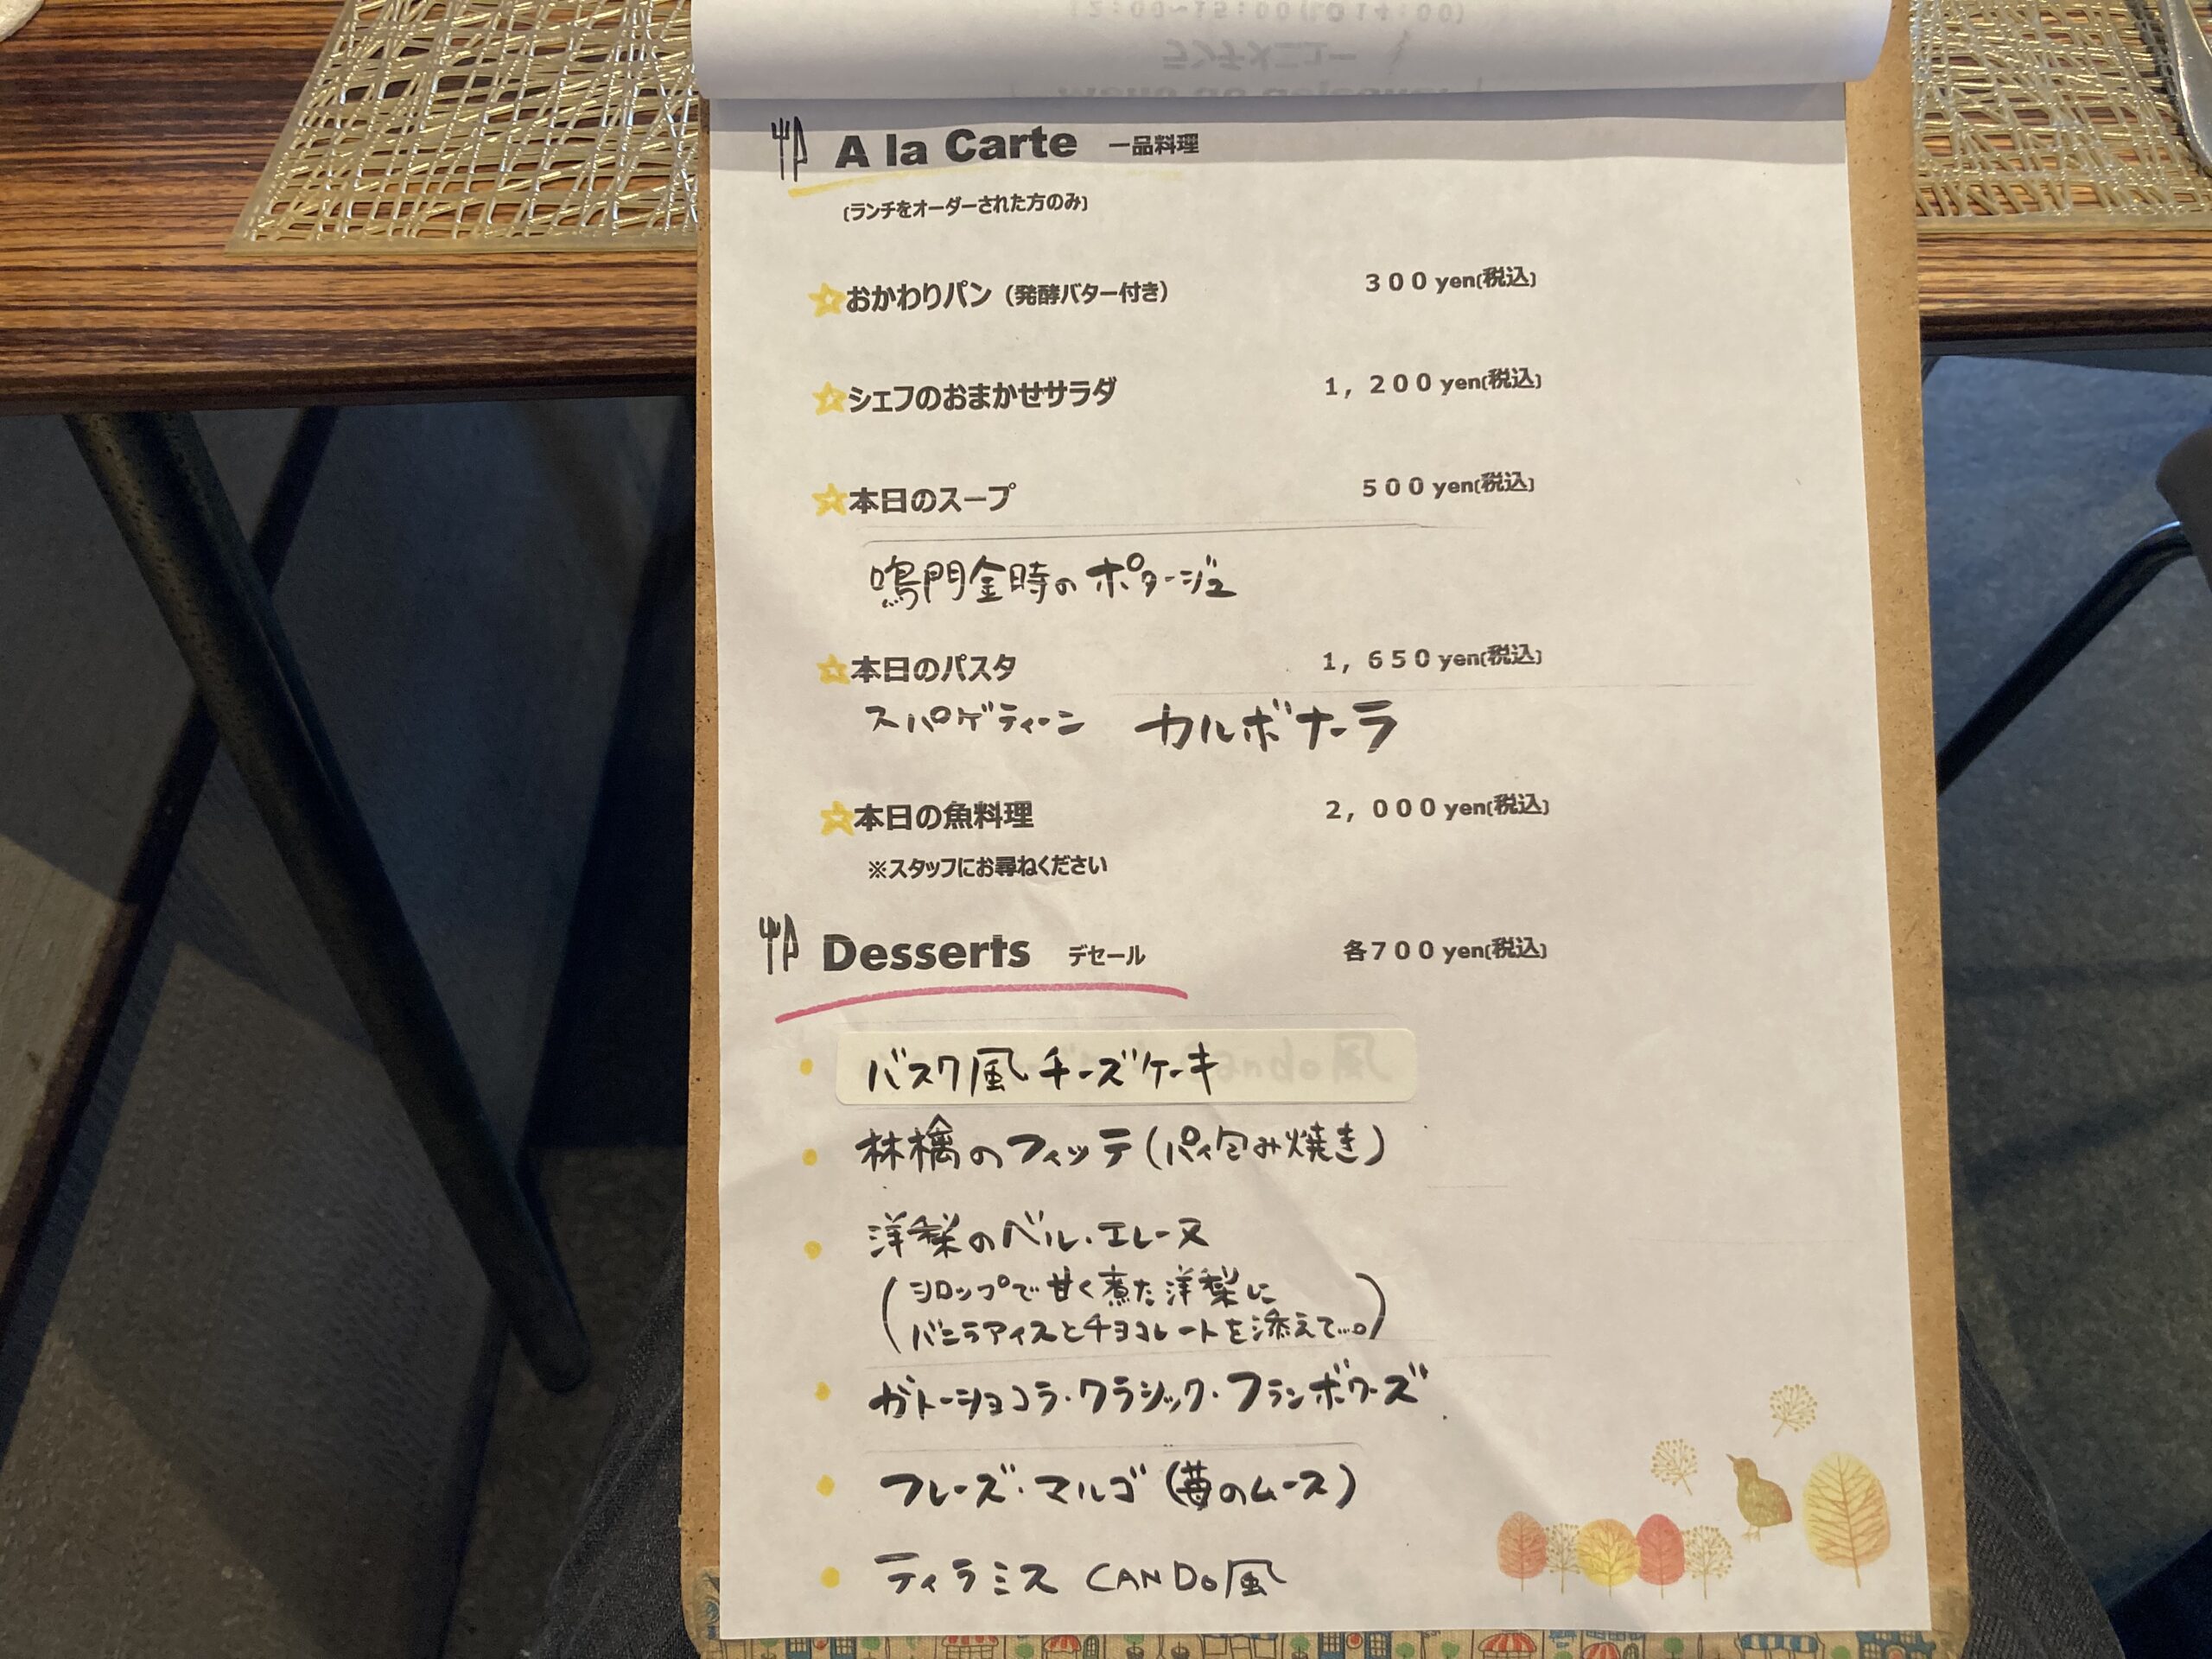 A la Carte 一品料理
(ランチをオーダーされた方のみ)
☆おかわりパン（発酵バター付き） 300yen(税込)
☆シェフのおまかせサラダ 1,200yen(税込)
☆本日のスープ 500yen(税込)
鳴門金時のポタージュ
☆本日のパスタ 1,650yen(税込)
スパゲティーン カルボナーラ
☆本日の魚料理 2,000yen(税込)
※スタッフにお尋ねください
Desserts デセール 各700yen(税込)
バスク風チーズケーキ
林檎のフィッテ(パイ包み焼き)
洋梨のベル・エレーヌ
(シロップで甘く煮た洋梨に
バニラアイスとチョコレートを添えて…。)
ガトーショコラ・クラシック・フランボワーズ
フレーズ・マルゴ(苺のムース)
ティラミス CANDo風